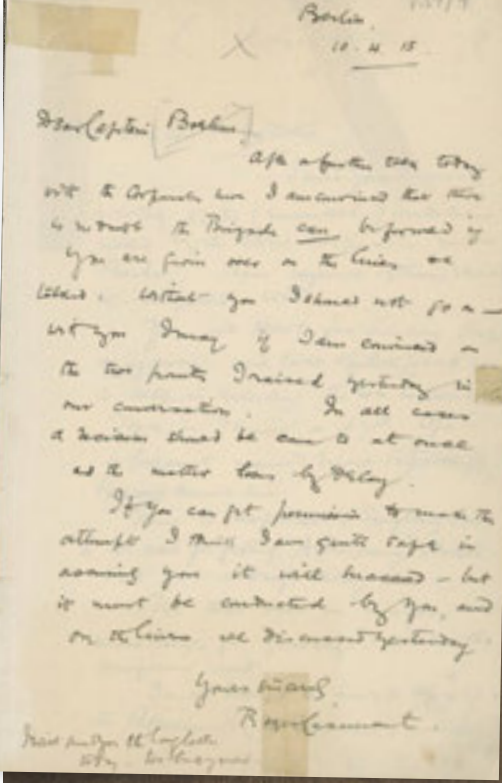 Berlin.
10. 4. 15.
Dear Captain Boehm.
After a further talk today
with the Corporals here I am convinced that there
is no doubt the Brigade can be formed if
you are given over on the lines we
talked. Without you I should not go on —
with you I may if I am convinced on
the two points I raised yesterday in
our conversation. In all cases
a decision should be come to at once
as the matter loses by delay.
If you can get permission to make the
attempt I think I am quite safe in
assuring you it will succeed - but
it must be conducted by you, and
on the lines we discussed yesterday
Yours sincerely
Roger Casement.